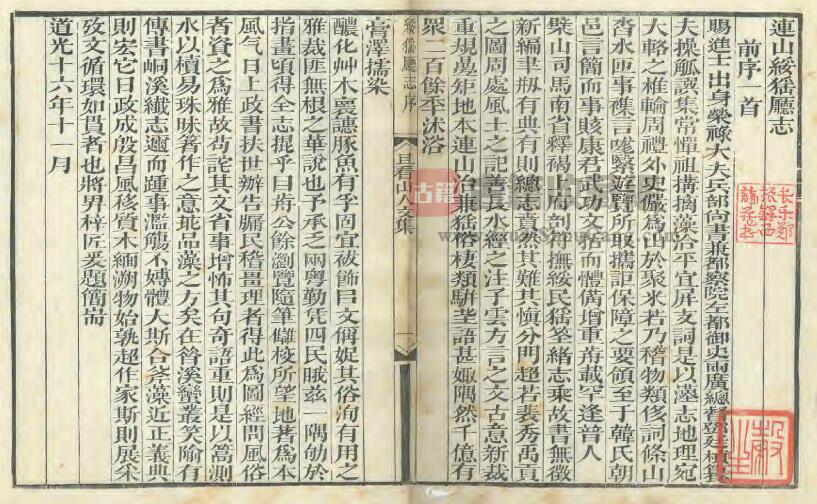 連山綏猺廳志
前序一首
賜進士出身榮祿大夫兵部尚書兼都察院左都御史兩廣總督鄧廷楨
夫操觚譔集常憚祖構摛藻洽平宜屏支詞是以志地理宛
大輅之椎輪周禮外史儼為山於聚米若乃稽物類侈詞條山
沓水匝事襍言嚨繄好覽所取攜詎保障之要領至于韓氏朝
邑言簡而事賅康君武功文捨而體僃增重舟載罕逢普人
檗山司馬南省釋褐府剖符撫綏民猺荃緒志乘故書無徵
新編書刱有典有則總志然其難其慎分門超若裴秀禹貢
之圖周處風土之記善長水經之注子雲方言之文古意新裁
重規疊矩地本連山治兼猺俗棲類駢語甚娵隅然千億有
眾二百餘年沐浴
綏猺廳志序 且看山人文集 一
膏澤擩染
醲化艸木讌豚魚有孚固宜袚飾㠯文稱娖其俗洵有用之
雅裁匪無根之華說也予承乏兩粵勤凭四民睠茲一隅劬於
指畫頃得全志提乎㠯舟公餘瀏覽隨筆讎校所望地著為本
風气日上政書扶世辦告牖民稽畺理者得此為圖經問風俗
者資之為雅故若詫其文省事增怖其句奇語重則是以蠡測
水以櫝易珠昧著作之意玼品藻之方矣在昝溪蠻叢笑喻有
傳書峒溪纖志邇而踵事濫觴不嫥體大斯合参藻近正義典
則宏它日政成殷昌風移質木緬溯物始孰超作家斯則展采
攷文循環如貫者也將畀梓匠爰題簡耑
道光十六年十一月